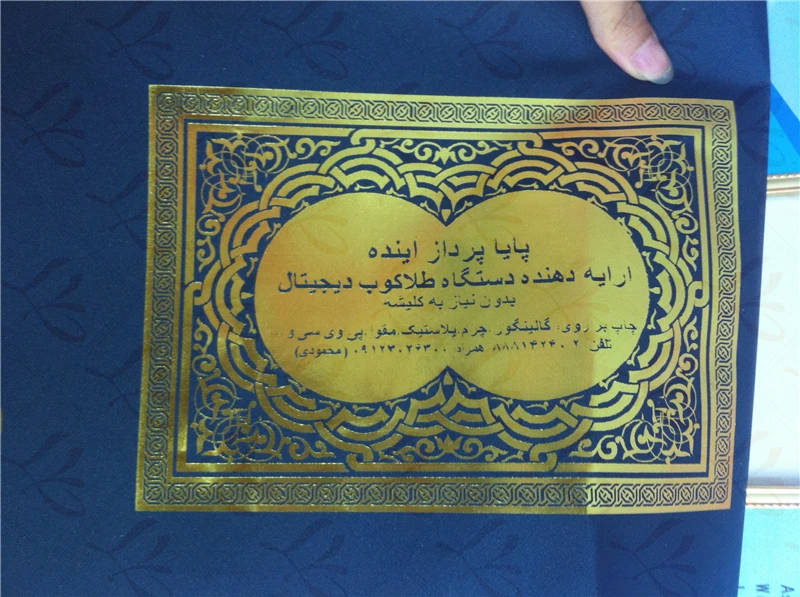 پایا پرداز اینده
ارایه دهنده دستگاه طلاکوب دیجیتال
بدون نیاز به کلیشه
چاپ بر روی: گالینگور، چرم، پلاستیک، مقوا، پی وی سی و ...
تلفن ۲ - ۸۸۸۱۴۲۴۰ همراه ۰۹۱۲۳۰۲۶۳۰۰ (محمودی)